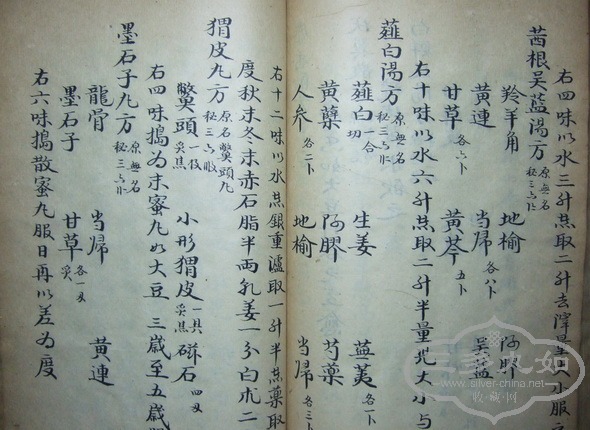 右四味以水三升煎取二升去滓量大小服
茜根吴藍湯方 原無名 秘三六卜
羚羊角 地榆 阿膠
黄連 当帰 各八卜 吴藍
甘草 各六卜 黄芩 五卜
右十味以水六升煎取二升半量児大小与
薤白湯方 原無名 秘三六卜
薤白 切一合 生姜 蕪荑 各一卜
黄蘗 阿膠 芍藥
人参 各二卜 地榆 当帰 各三卜
右十二味以水煎銀重濾取一升半煎藥取
度秋末冬末赤石脂半兩乳姜一分白朮二
猬皮丸方 原名鱉頭丸 秘三六
鱉頭 一枚炙焦 小形猬皮 一具炙焦 磁石 四又
右四味搗為末蜜丸如大豆三歳至五歳
墨石子丸方 原無名 秘三六卜
龍骨 当帰 各一又 黄連
墨石子 甘草 炙
右六味搗散蜜丸服日再以差為度
www.silver-china.net
收藏网